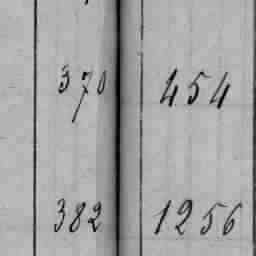 370 454
382 1256